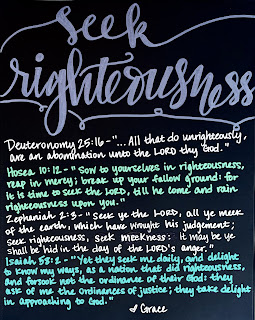 Seek
righteousness
Deuteronomy 25:16 - "... All that do unrighteously,
are an abomination unto the LORD thy God."
Hosea 10:12 - "Sow to yourselves in righteousness,
reap in mercy; break up your fallow ground: for
it is time to seek the LORD, till he come and rain
righteousness upon you."
Zephaniah 2:3 - "Seek ye the LORD, all ye meek
of the earth, which have wrought his judgement;
seek righteousness, seek meekness: it may be ye
shall be hid in the day of the LORD's anger."
Isaiah 58:2 - "Yet they seek me daily, and delight
to know my ways, as a nation that did righteousness,
and forsook not the ordinance of their God: they
ask of me the ordinances of justice; they take delight
in approaching to God."
Grace